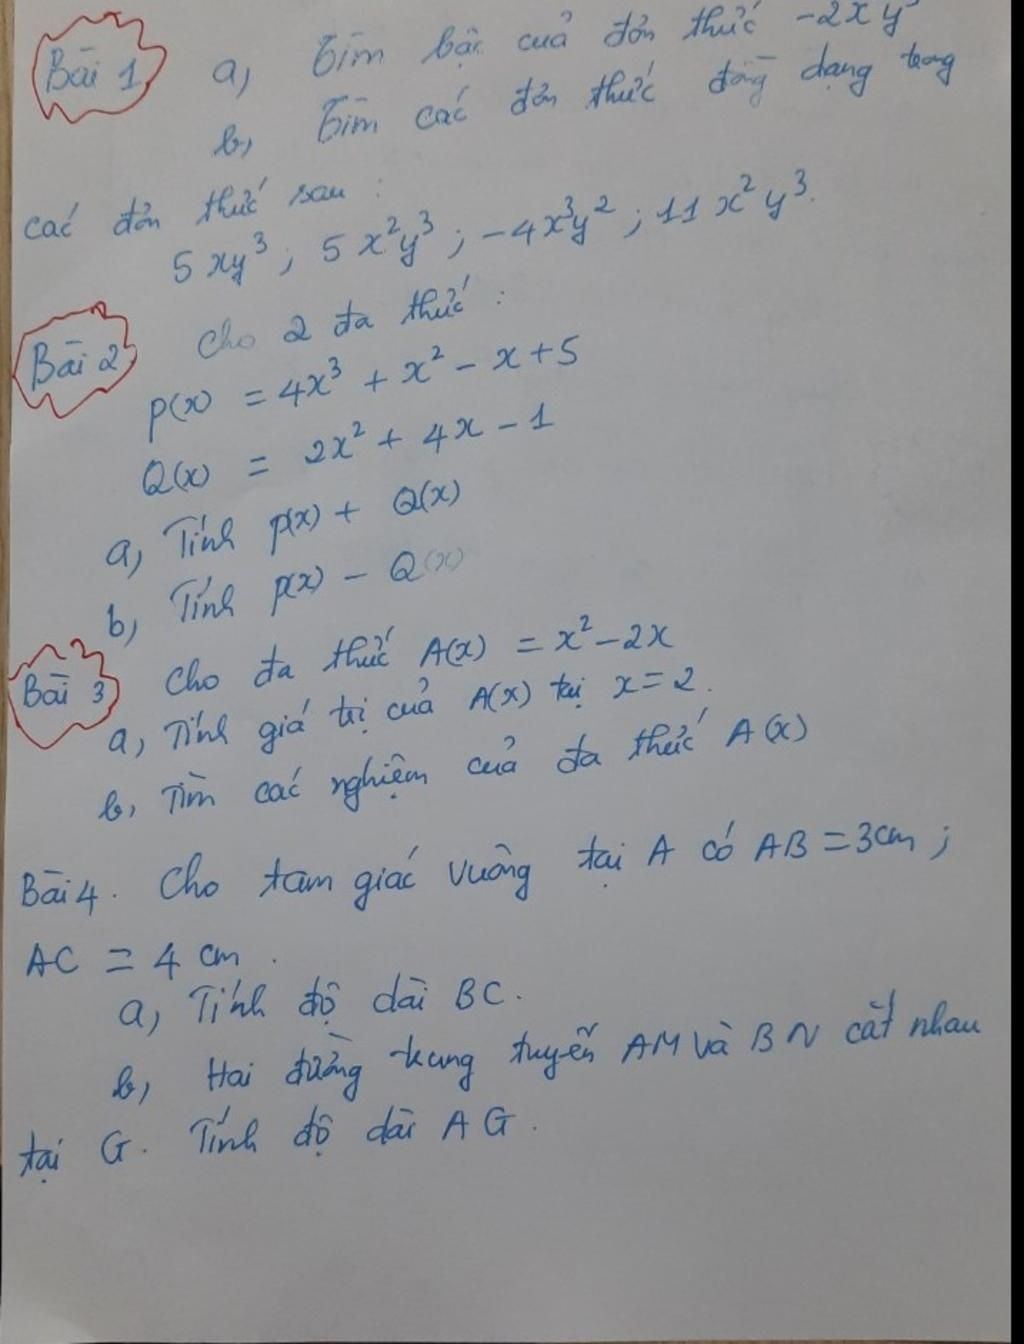 Bài 1 a, Tìm bậc của đơn thức -2xy
b, Tìm các đơn thức đồng dạng trong
các đơn thức sau :
5xy³ ; 5x²y³ ; -4x³y² ; 11x²y³.
Bài 2 Cho 2 đa thức :
P(x) = 4x³ + x² - x + 5
Q(x) = 2x² + 4x - 1
a, Tính p(x) + Q(x)
b, Tính p(x) - Q(x)
Bài 3 Cho đa thức A(x) = x² - 2x
a, Tính giá trị của A(x) tại x = 2.
b, Tìm các nghiệm của đa thức A(x)
Bài 4. Cho tam giác vuông tại A có AB = 3cm ;
AC = 4 cm .
a, Tính độ dài BC.
b, Hai đường trung tuyến AM và BN cắt nhau
tại G. Tính độ dài AG.